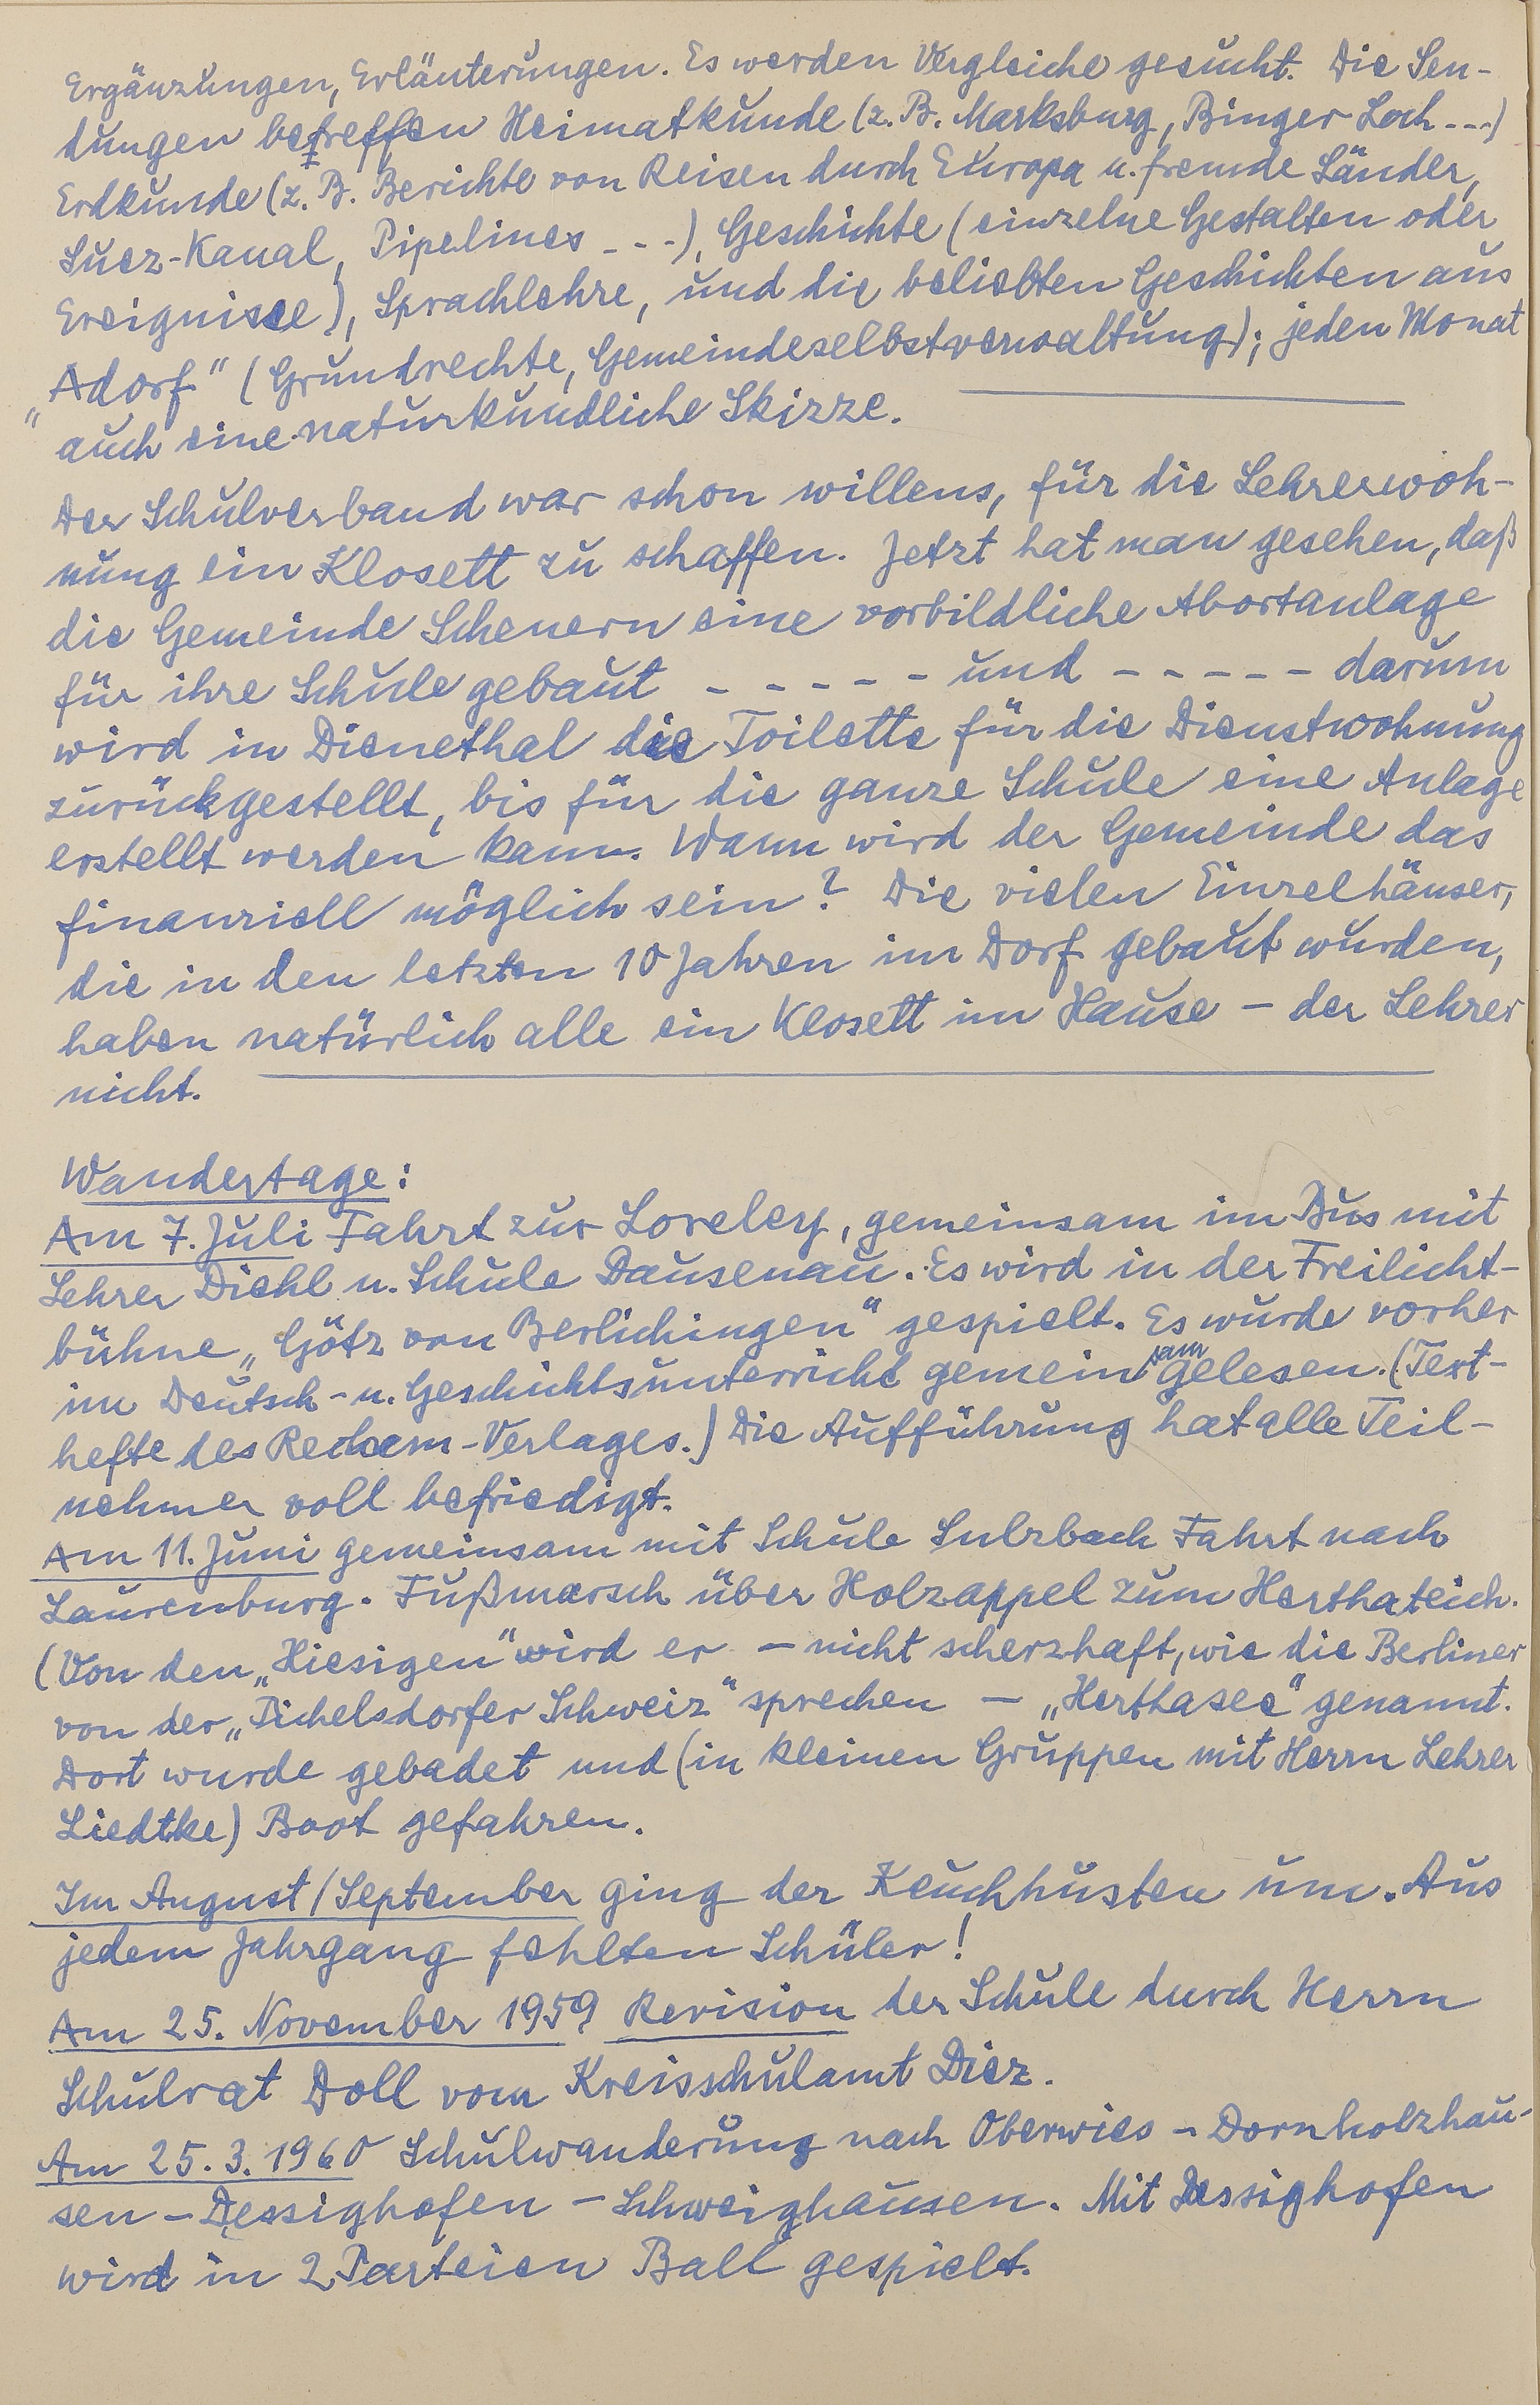 Ergänzungen, Erläuterungen. Es werden Vergleiche gesucht. Die Sen-
dungen betreffen Heimatkunde (z. B. Marksburg, Binger Loch ---)
Erdkunde (z. B. Berichte von Reisen durch Europa u. fremde Länder,
Suez-Kanal, Pipelines - - -), Geschichte (einzelne Gestalten oder
Ereignisse), Sprachlehre, und die beliebten Geschichten aus
„Adorf" (Grundrechte, Gemeindeselbstverwaltung); jeden Monat
auch eine naturkundliche Skizze.
Der Schulverband war schon willens, für die Lehrerwoh-
nung ein Klosett zu schaffen. Jetzt hat man gesehen, daß
die Gemeinde Scheuern eine vorbildliche Abortanlage
für ihre Schule gebaut - - - - - und - - - - - darum
wird in Dienethal die Toilette für die Dienstwohnung
zurückgestellt, bis für die ganze Schule eine Anlage
erstellt werden kann. Wann wird der Gemeinde das
finanziell möglich sein? Die vielen Einzelhäuser,
die in den letzten 10 Jahren im Dorf gebaut wurden,
haben natürlich alle ein Klosett im Hause – der Lehrer
nicht.
Wandertage:
Am 7. Juli Fahrt zur Loreley, gemeinsam im Bus mit
Lehrer Diehl u. Schule Dausenau. Es wird in der Freilicht-
bühne „Götz von Berlichingen" gespielt. Es wurde vorher
im Deutsch- u. Geschichtsunterricht gemeinsam gelesen. (Text-
hefte des Reclam-Verlages.) Die Aufführung hat alle Teil-
nehmer voll befriedigt.
Am 11. Juni gemeinsam mit Schule Sulzbach Fahrt nach
Laurenburg. Fußmarsch über Holzappel zum Herthateich.
(Von den „Hiesigen" wird er – nicht scherzhaft, wie die Berliner
von der „Pichelsdorfer Schweiz" sprechen – „Herthasee" genannt.
Dort wurde gebadet und (in kleinen Gruppen mit Herrn Lehrer
Liedtke) Boot gefahren.
Im August/September ging der Keuchhusten um. Aus
jedem Jahrgang fehlten Schüler!
Am 25. November 1959 Revision der Schule durch Herrn
Schulrat Doll vom Kreisschulamt Diez.
Am 25. 3. 1960 Schulwanderung nach Oberwies – Dornholzhau-
sen – Dessighofen – Schweighausen. Mit Dessighofen
wird in 2 Parteien Ball gespielt.